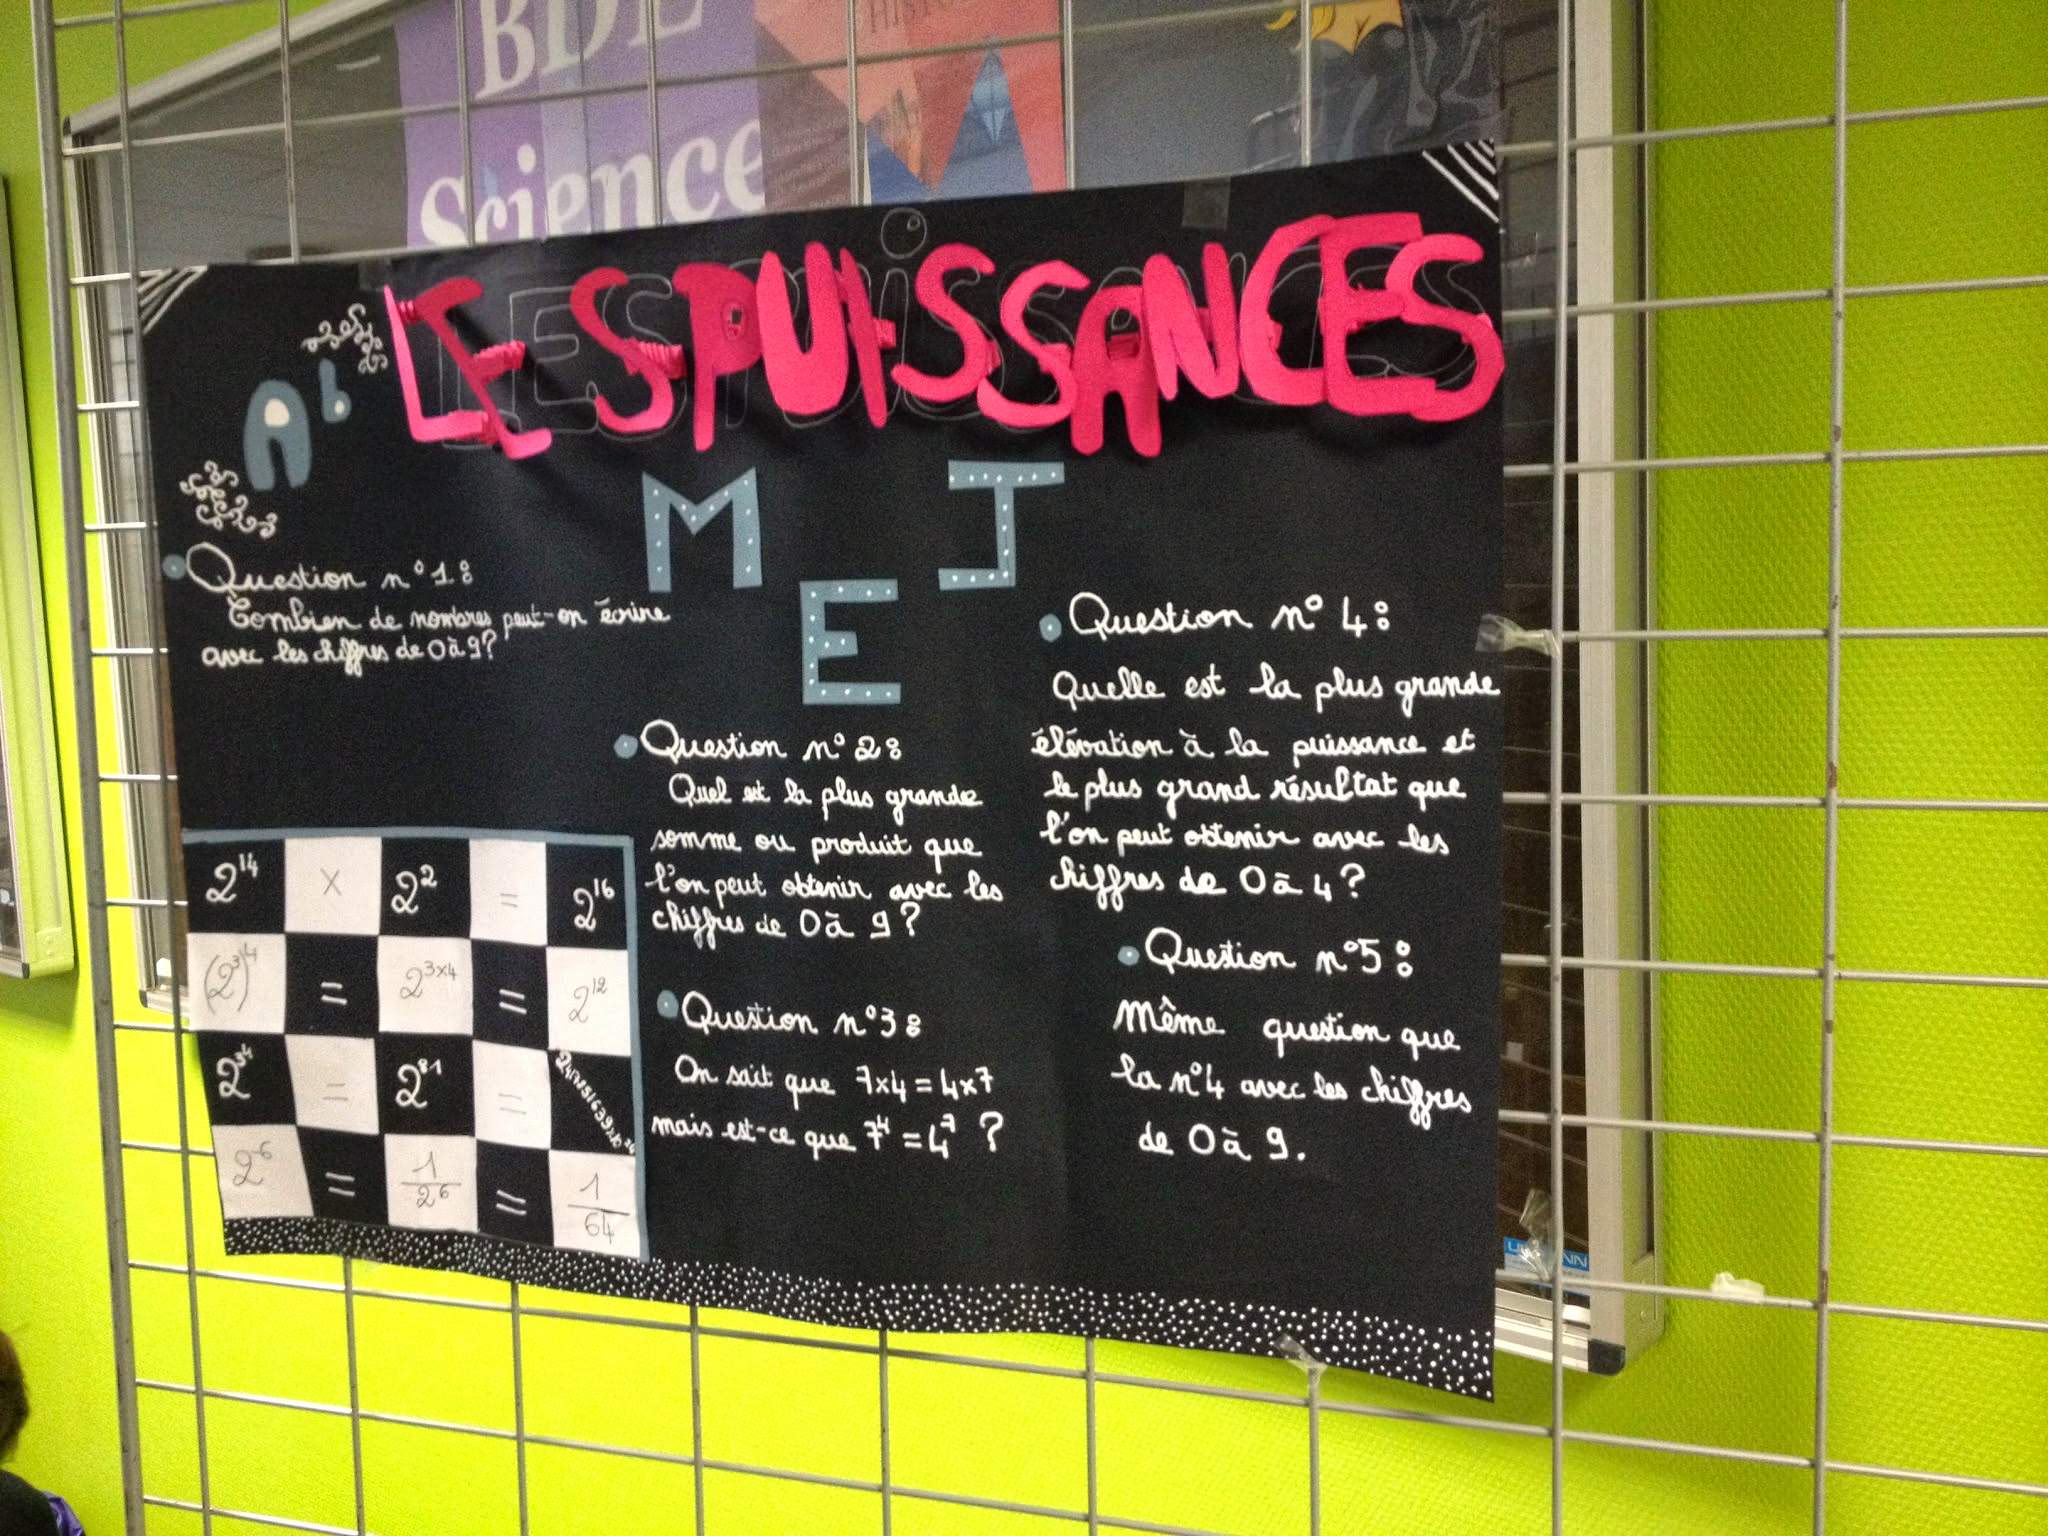 BDE
Science
LES PUISSANCES
A^b
M E J
Question n° 1 :
Combien de nombres peut-on écrire
avec les chiffres de 0 à 9 ?
Question n° 2 :
Quel est la plus grande
somme ou produit que
l'on peut obtenir avec les
chiffres de 0 à 9 ?
Question n° 3 :
On sait que 7x4 = 4x7
mais est-ce que 7^4 = 4^7 ?
Question n° 4 :
Quelle est la plus grande
élévation à la puissance et
le plus grand résultat que
l'on peut obtenir avec les
chiffres de 0 à 4 ?
Question n° 5 :
Même question que
la n° 4 avec les chiffres
de 0 à 9.
2^14 x 2^2 = 2^16
(2^3)^4 = 2^3x4 = 2^12
2^3^4 = 2^81 =
2^-6 = 1/2^6 = 1/64